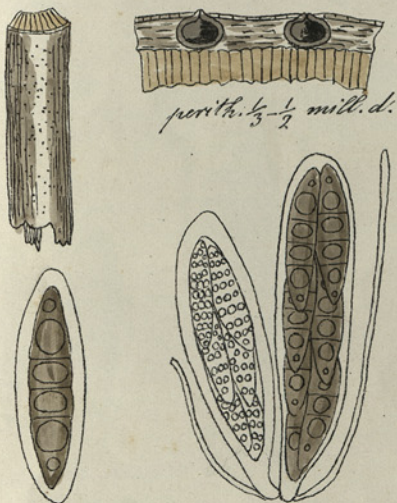 perith. 1/3-1/2 mill. d.